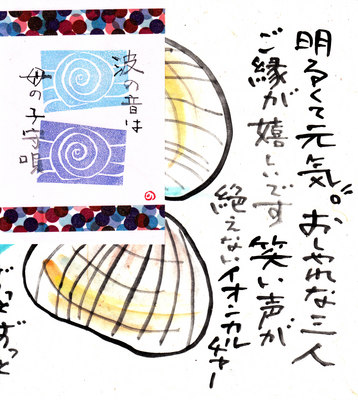 明るくて元気。おしゃれな三人
ご縁が嬉しいです 笑い声が
絶えないイオンカルチャー
波の音は
母の子守唄
ずっとずっと